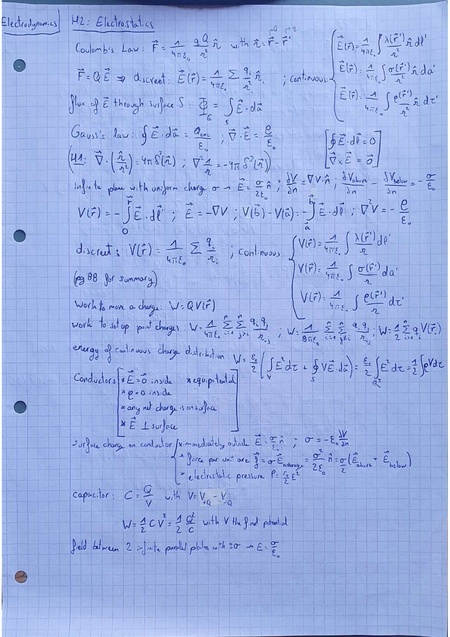 Electrodynamics
H2: Electrostatics
Coulomb's Law: F⃗ = 1/4πε₀ qQ/𝓇² 𝓇̂ with 𝓇⃗ = r⃗ - r⃗'
F⃗ = QE⃗ ⇒ discreet: E⃗(r⃗) = 1/4πε₀ Σ qᵢ/𝓇ᵢ² 𝓇̂ᵢ ; continuous:
E⃗(r⃗) = 1/4πε₀ ∫ λ(r⃗')/𝓇² 𝓇̂ dl'
E⃗(r⃗) = 1/4πε₀ ∫ σ(r⃗')/𝓇² 𝓇̂ da'
E⃗(r⃗) = 1/4πε₀ ∫ ρ(r⃗')/𝓇² 𝓇̂ dτ'
flux of E⃗ through surface S: Φ = ∫ E⃗·da⃗
Gauss's law: ∮ E⃗·da⃗ = Q/ε₀ ; ∇⃗·E⃗ = ρ/ε₀
[∮ E⃗·dl⃗ = 0
∇⃗ × E⃗ = 0⃗]
(H1: ∇⃗·(𝓇̂/𝓇²) = 4πδ³(𝓇⃗) ; ∇² 1/𝓇 = -4πδ³(𝓇⃗))
infinite plane with uniform charge σ → E⃗ = σ/2ε₀ n̂ ; ∂V/∂n = ∇⃗V·n̂ ; ∂V above/∂n - ∂V below/∂n = -σ/ε₀
V(r⃗) = -∫ E⃗·dl⃗ ; E⃗ = -∇V ; V(b⃗) - V(a⃗) = -∫ E⃗·dl⃗ ; ∇²V = -ρ/ε₀
discreet: V(r⃗) = 1/4πε₀ Σ qᵢ/𝓇ᵢ ; continuous:
V(r⃗) = 1/4πε₀ ∫ λ(r⃗')/𝓇 dl'
V(r⃗) = 1/4πε₀ ∫ σ(r⃗')/𝓇 da'
V(r⃗) = 1/4πε₀ ∫ ρ(r⃗')/𝓇 dτ'
(pg 88 for summary)
Work to move a charge: W = QV(r⃗)
work to set up point charges: W = 1/4πε₀ Σ Σ qᵢqⱼ/𝓇ᵢⱼ ; W = 1/8πε₀ Σ Σ qᵢqⱼ/𝓇ᵢⱼ ; W = 1/2 Σ qᵢV(r⃗ᵢ)
energy of continuous charge distribution W = ε₀/2 (∫ E² dτ + ∮ VE⃗·da⃗) = ε₀/2 ∫ E² dτ = 1/2 ∫ ρV dτ
Conductors
* E⃗ = 0⃗ inside * equipotential
* ρ = 0 inside
* any net charge is on surface
* E⃗ ⊥ surface
Surface charge on conductor
* immediately outside E⃗ = σ/ε₀ n̂ ; σ = -ε₀ ∂V/∂n
* force per unit are f⃗ = σE⃗ average = σ²/2ε₀ n̂ = σ/2 (E⃗ above + E⃗ below)
* electrostatic pressure P = ε₀/2 E²
capacitor: C = Q/V with V = V₊Q - V₋Q
W = 1/2 CV² = 1/2 Q²/C with V the final potential
field between 2 infinite parallel plates with ±σ → E = σ/ε₀